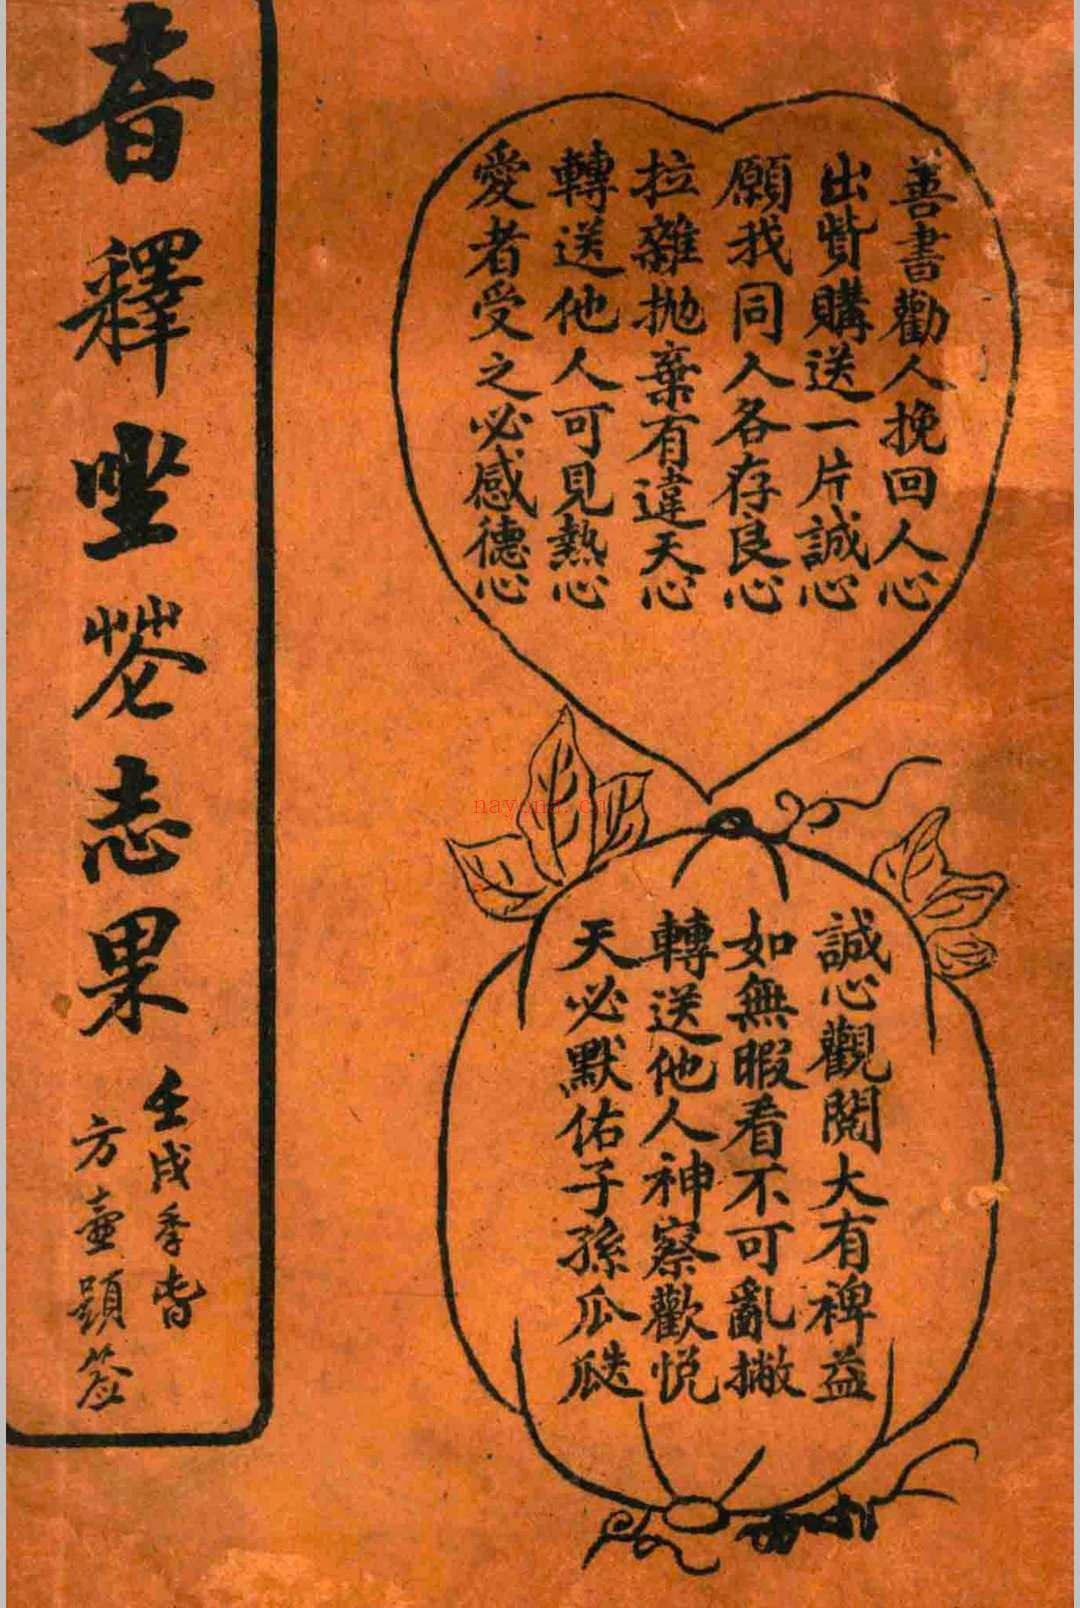 善書勸人挽回人心
出貲購送一片誠心
願我同人各存良心
拉雜拋棄有違天心
轉送他人可見熱心
愛者受之必感德心
誠心觀閱大有裨益
如無暇看不可亂撇
轉送他人神察歡悅
天必默佑子孫瓜瓞
音釋坐花志果
壬戌季春
方壺題簽